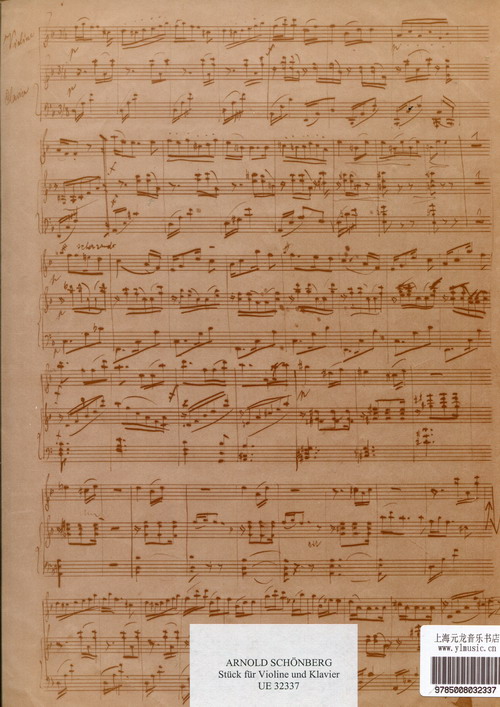 Violine
Klavier
ARNOLD SCHÖNBERG
Stück für Violine und Klavier
UE 32337
上海元龙音乐书店
www.ylmusic.cn
9785008032337